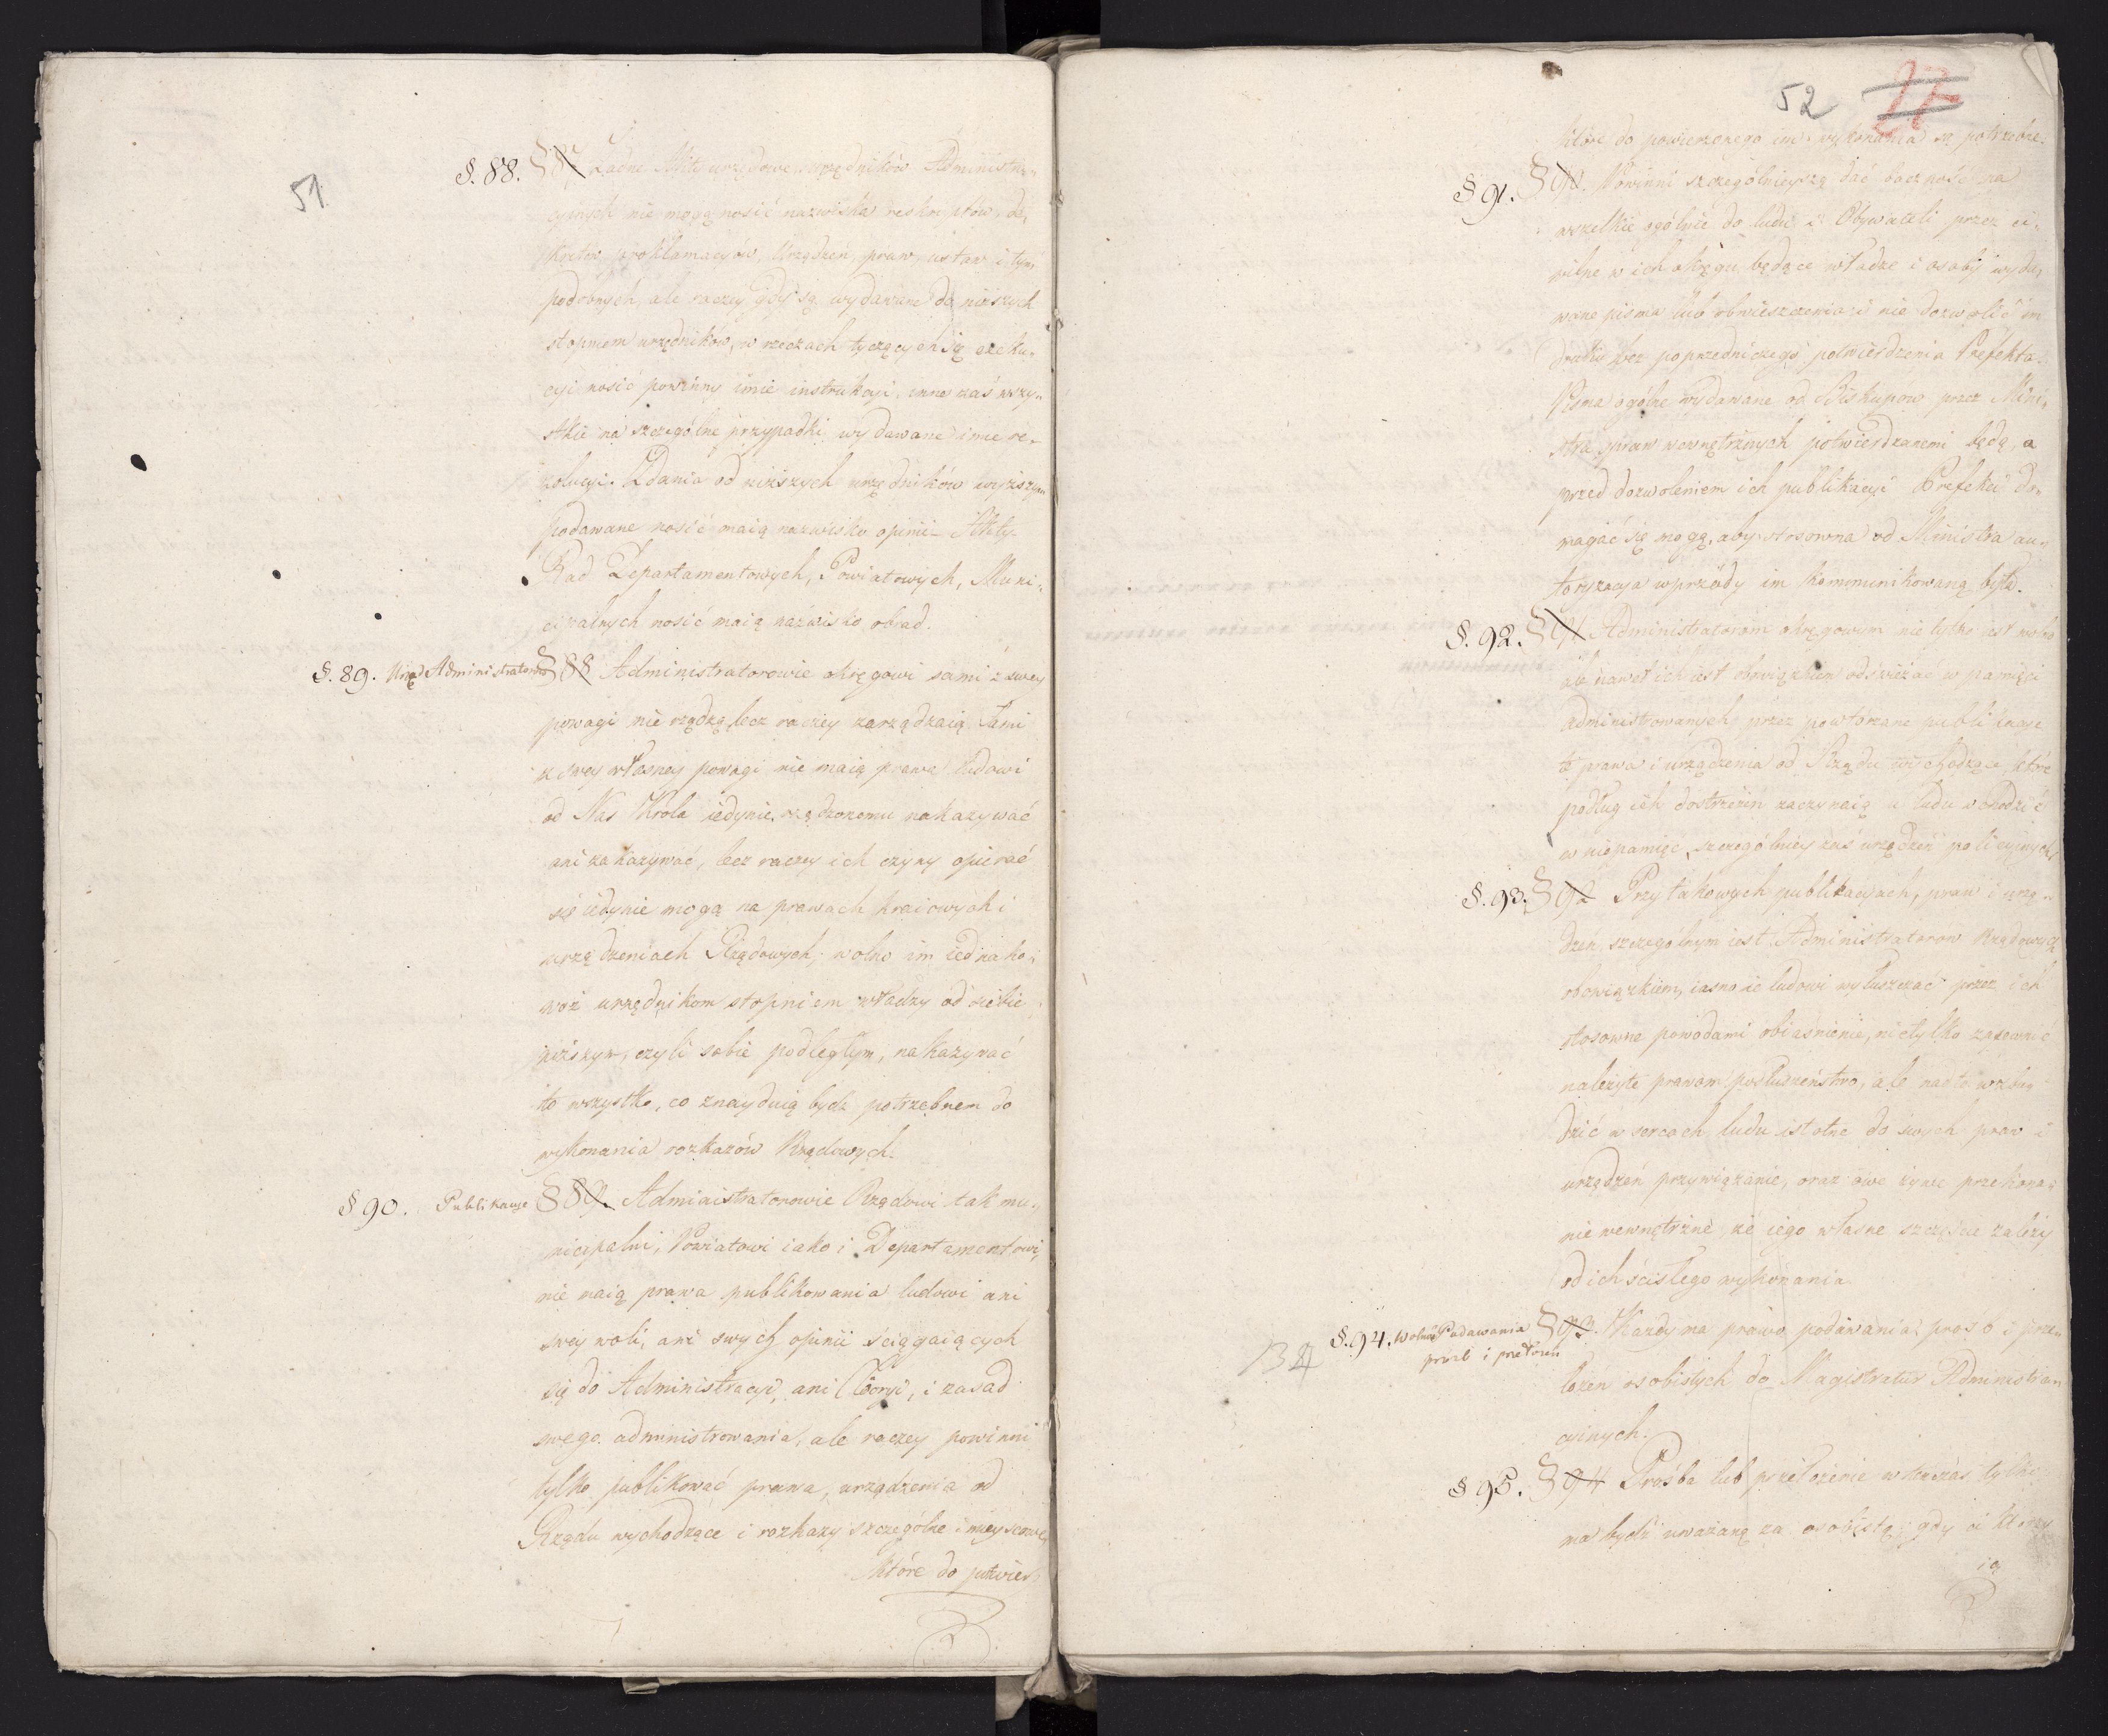 51
§. 88. § 87 Żadne Akty urzędowe urzędników Administra„
cyjnych nie mogą nosić nazwiska reskryptów, de„
kretów, proklamacyów, Urządzeń, praw, ustaw i tym
podobnych, ale raczey gdy są wydawane do niższych
stopniem urzędników, w rzeczach tyczących się exeku„
cyi nosić powinny imie instrukcyi, inne zaś wszy„
stkie na szczególne przypadki wydawane imie re„
zolucyi. Zdania od niższych urzędników wyższym
podawane nosić maią nazwisko opinii. Akty
Rad Departamentowych, Powiatowych, Muni„
cipalnych nosić maią nazwisko obrad.
§. 89. Urząd Administratorów § 88 Administratorowie okręgowi sami z swey
powagi nie rządzą, lecz raczey zarządzaią. Sami
z swey własney powagi nie maią prawa ludowi
od Nas Króla iedynie rządzonemu nakazywać
ani zakazywać, lecz raczey ich czyny opierać
się iedynie mogą na prawach kraiowych i
urządzeniach Rządowych; wolno im iednako„
woż urzędnikom stopniem władzy od siebie
niższym, czyli sobie podległym, nakazywać
to wszystko, co znayduią bydź potrzebnem do
wykonania rozkazów Rządowych.
§ 90. Publikacye § 89 Administratorowie Rządowi tak mu„
nicypalni, Powiatowi iako i Departamentowi,
nie maią prawa publikowania ludowi ani
swey woli, ani swych opinii ściągaiących
się do Administracyi, ani Teoryi, i zasad
swego administrowania, ale raczey powinni
tylko publikować prawa, urządzenia od
Rządu wychodzące i rozkazy szczególne i mieyscowe,
które do powierz„
52 27
które do powierzonego im wykonania są potrzebne.
§ 91. § 90. Powinni szczególnieyszą dać baczność na
wszelkie ogólnie do ludu i Obywateli przez ci„
wilne w ich okręgu będące władze i osoby wyda„
wane pisma lub obwieszczenia i nie dozwolić im
druku bez poprzedniczego potwierdzenia Prefekta.
Pisma ogólne wydawane od Biskupów przez Mini„
stra spraw wewnętrznych potwierdzanemi będą, a
przed dozwoleniem ich publikacyi Prefekci do„
magać się mogą, aby stosowna od Ministra au„
toryzacya wprzódy im kommunikowaną była.
§. 92. § 91 Administratorom okręgowym nie tylko iest wolno
ale nawet ich iest obowiązkiem odświeżać w pamięci
administrowanych przez powtórzane publikacye
te prawa i urządzenia od Rządu wychodzące, które
podług ich dostrzeżeń zaczynaią u ludu wchodzić
w niepamięć, szczególniey zaś urządzeń policyjnych.
§. 93. § 92 Przy takowych publikacyach, praw i urzą„
dzeń szczególnym iest Administratorow Rządowych
obowiązkiem, iasno ie ludowi wyłuszczać przez ich
stosowne powodami obiaśnienie, nietylko zapewnić
należyte prawom posłuszeństwo, ale nadto wzbu„
dzić w sercach ludu istotne do swych praw i
urządzeń przywiązanie, oraz owe żywe przekona„
nie wewnętrzne, że iego własne szczęście zależy
od ich ścisłego wykonania.
§. 94. Wolność Podawania § 93. Każdy ma prawo podawania prośb i prze„
prośb i przełożeń
łożeń osobistych do Magistratur Administra„
cyinych.
§ 95. § 94 Prośba lub przełożenie wtenczas tylko
ma bydź uważaną za osobistą, gdy ci którzy
ią